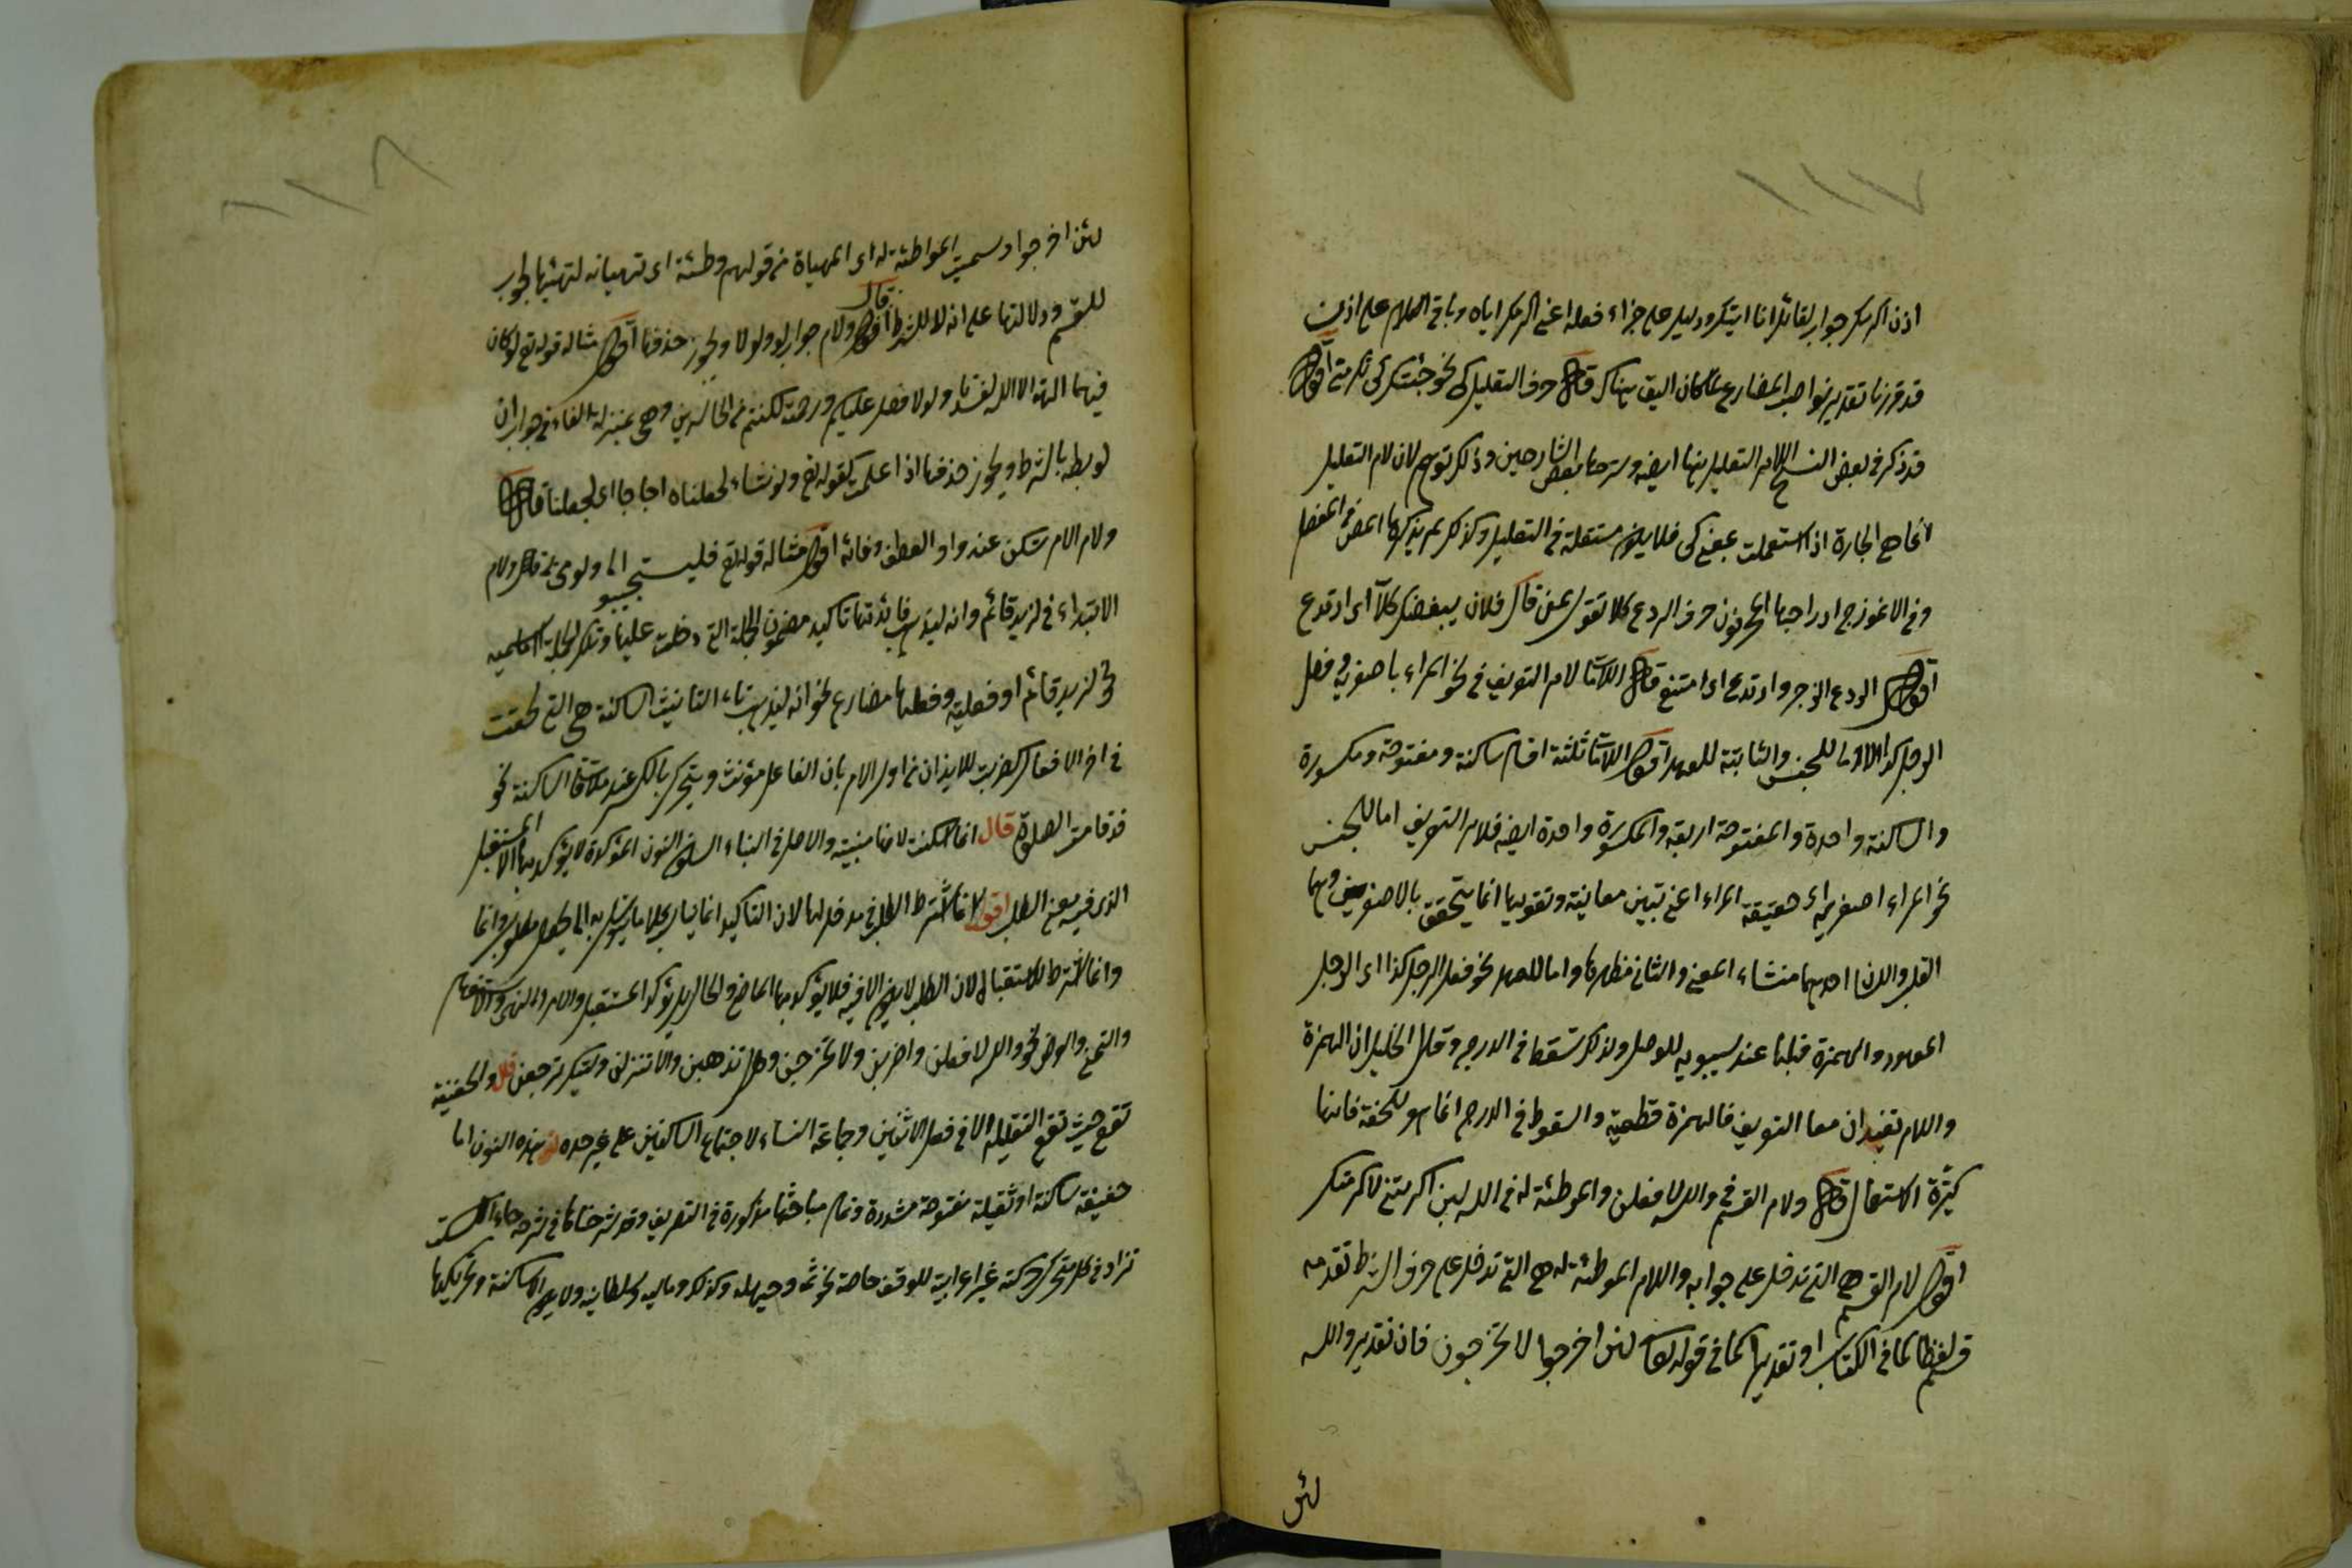 ١١٧
اذن اكرمك جواب لقائل انا اتيك ودليل على جزاء فعله اعني اكرمك اياه وباقي الكلام على اذن
قد قررنا تقدير نواصب المضارع لما كان اليق هناك قال حرف التعليل كي نحو جئتك كي تكرمني اقول
قد ذكر في بعض النسخ اللام التعليل منها ايضا وشرحها بعض الشارحين وذلك توهم لان لام التعليل
انما هي الجارة اذا استعملت بمعنى كي فلا يكون مستقلة في التعليل وكذلك لم يذكرها المص في المفصل
وفي الانموذج ادراجها حرف الردع كلا تقول لمن قال فلان يبغضك كلا اي ارتدع
اقول الردع الزجر وارتدع اي امتنع قال اللامات لام التعريف في نحو المرء باصغريه وفعل
الرجل كذا الاولى للجنس والثانية للعهد اقول اللامات ثلثة اقسام ساكنة ومفتوحة ومكسورة
والساكنة واحدة والمفتوحة اربعة والمكسورة واحدة ايضا فلام التعريف اما للجنس
نحو المرء باصغريه اي حقيقة المرء اعني تبين معانيه وتقويمها انما يتحقق بالاصغرين وهما
القلب واللسان احدهما منشاء المعنى والثاني مظهرها واما للعهد نحو فعل الرجل كذا اي الرجل
المعهود والهمزة قبلها عند سيبويه للوصل ولذلك تسقط في الدرج وقال الخليل ان الهمزة
واللام تفيدان معا التعريف فالهمزة قطعية والسقوط في الدرج انما هو للخفة فانها
كثيرة الاستعمال قال ولام القسم في والله لافعلن والموطئة له في والله لئن اكرمتني لاكرمتك
اقول لام القسم هي التي تدخل على جوابه واللام الموطئة له هي التي تدخل على حرف الشرط تقدمه
قسم لفظا كما في الكتاب او تقديرا كما في قوله تعالى لئن اخرجوا لا يخرجون فان تقديره والله
لئن
١١٨
لئن اخرجوا وسميت الموطئة له اي المهياة من قولهم وطئة اي تهيأته لتهيئها لجواب
للقسم ودلالتها على انه لا للشرط قال ولام جواب لو ولولا ويجوز حذفها اقول مثاله قوله تع لو كان
فيهما الهة الا الله لفسدتا ولولا فضل عليكم ورحمته لكنتم من الخاسرين وهي بمنزلة الفاء في جواب ان
لربطه بالشرط ويجوز حذفها اذا علمت كقوله تع ولو نشاء لجعلناه اجاجا اي لجعلنا قال
ولام الامر تسكن عند واو العطف وفائه اقول مثاله قوله تع فليستجيبوا لي وليؤمنوا بي قال ولام
الابتداء في لزيد قائم وانه ليذهب فائدتها تاكيد مضمون الجملة التي دخلت عليها وتلك الجملة اسمية
نحو لزيد قائم او فعلية وفعلها مضارع نحو انه ليذهب تاء التانيث الساكنة هي التي لحقت
في اخر الافعال كضربت للايذان من اول الامر بان الفاعل مؤنث ويتحرك بالكسر عند ملاقاة الساكنة نحو
قد قامت الصلوة قال انما سكنت لانها مبنية والاصل في البناء السكون النون المؤكدة لا يؤكد بها الا المستقبل
الذي فيه معنى الطلب اقول انما اشترط الطلب في مدخولها لان التاكيد انما يناسب
وانما اشترط الاستقبال لان الطلب لا يكون الا فيه فلا يؤكد بها الماضي والحال بل يؤكد المستقبل والامر والنهي والاستفهام
والتمني والعرض نحو والله لافعلن واضربن ولا تخرجن وهل تذهبن والا تنزلن وليتك ترجعن قال والخفيفة
تقع حيث تقع الثقيلة الا في فعل الاثنين وجماعة النساء لاجتماع الساكنين على غير حده هذه النون اما
خفيفة ساكنة او ثقيلة مفتوحة مشددة وتمام مباحثها مذكورة في التصريف وقد شرحناها في شرحه هاء السكت
تزاد في كل متحرك حركته غير اعرابية للوقف خاصة نحو ثمه وحيهله وكذلك وماليه وسلطانيه ولا يكون الا ساكنة وتحريكها